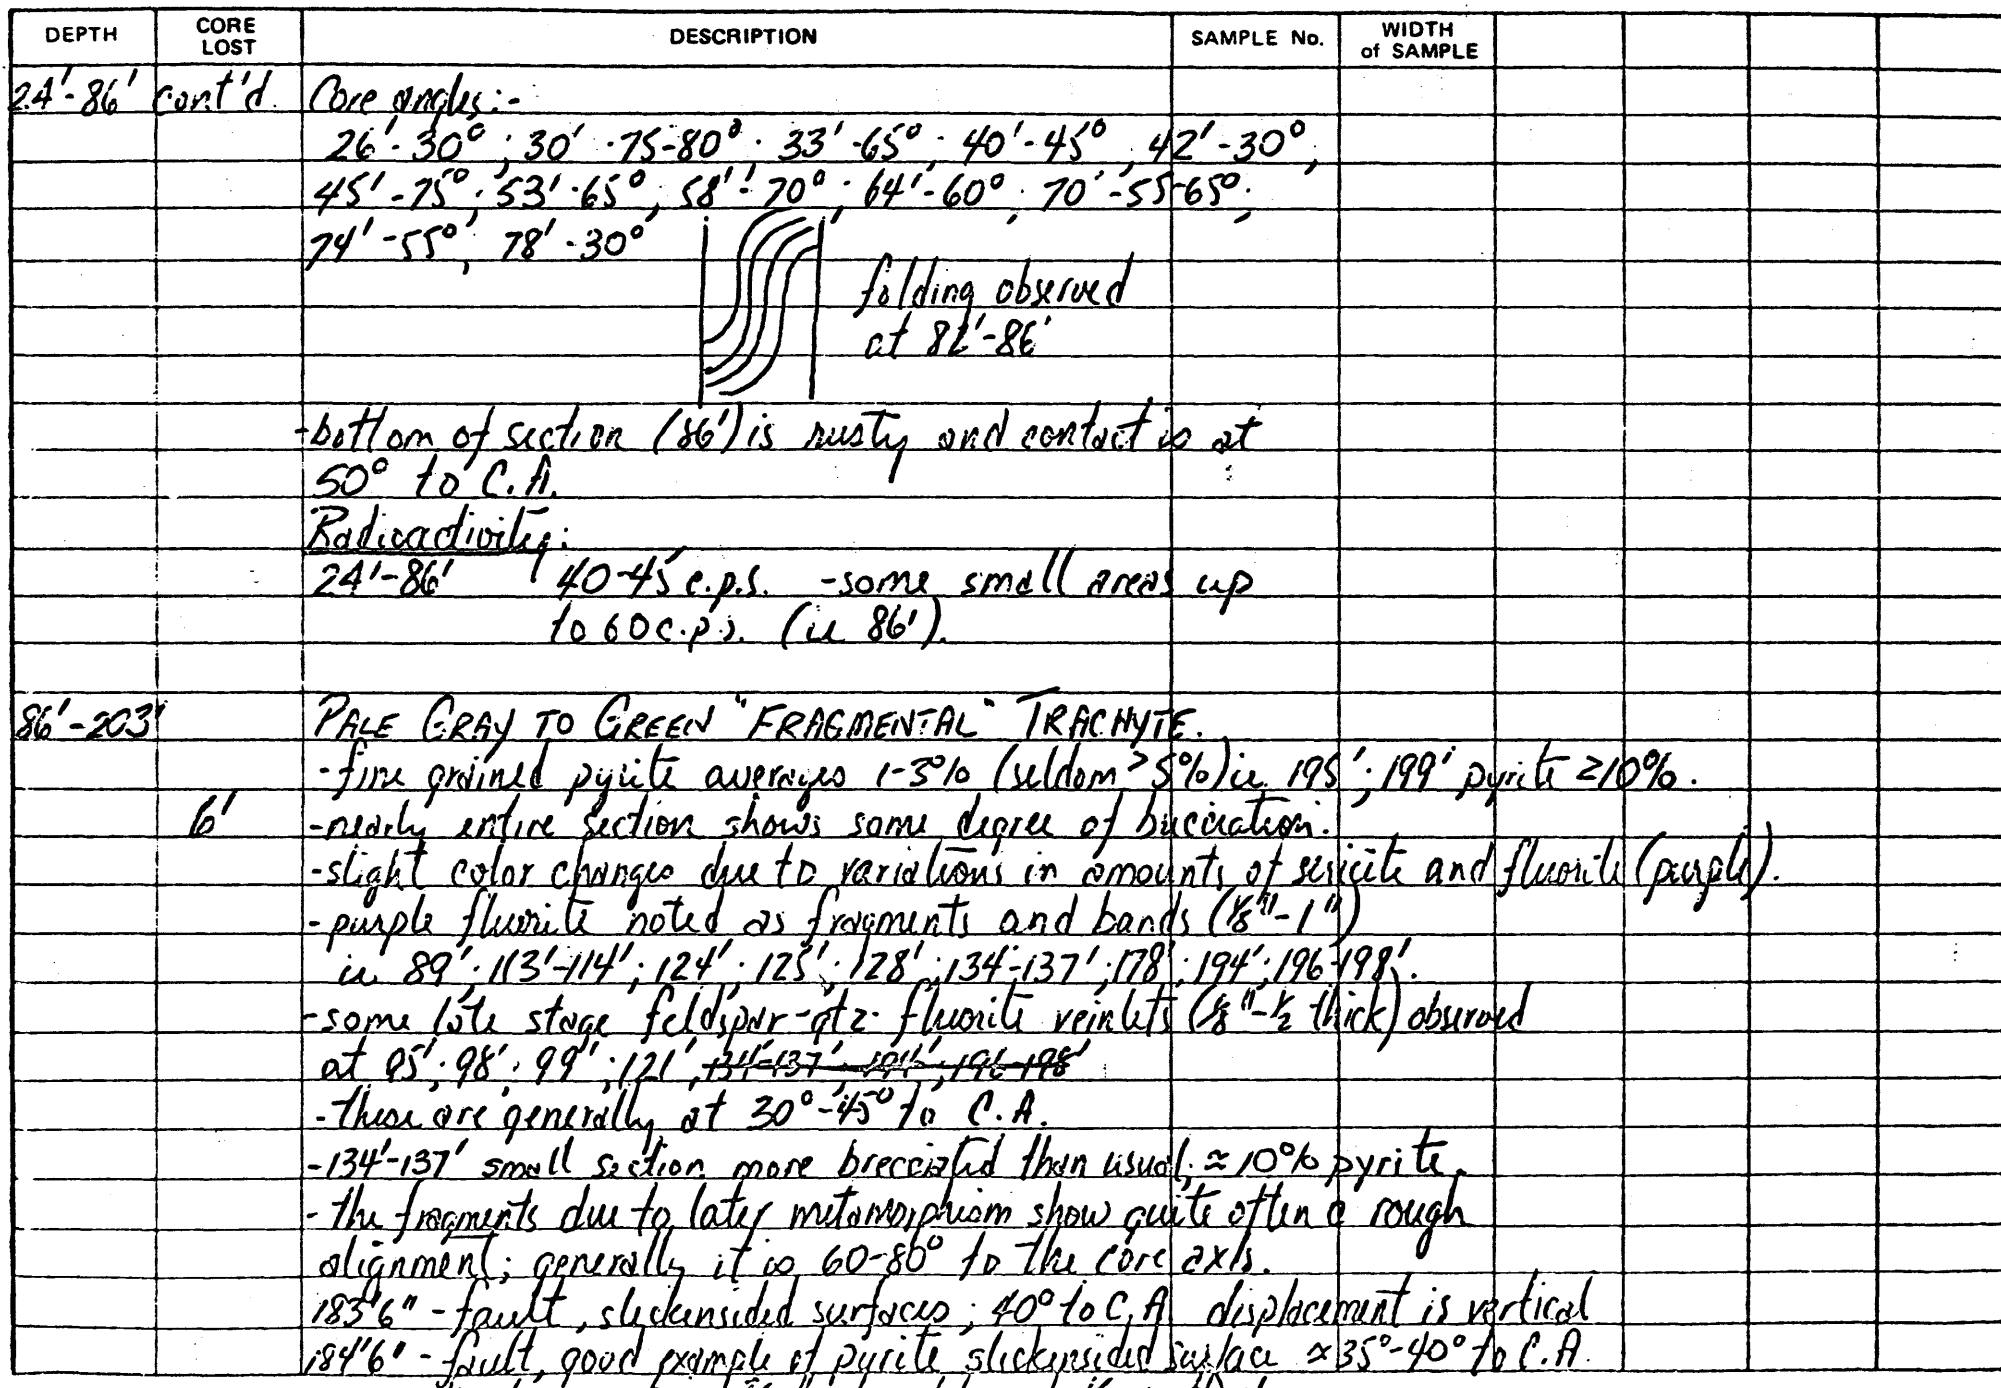 DEPTH CORE LOST DESCRIPTION SAMPLE No. WIDTH of SAMPLE
24'-86' cont'd. Core angles:-
26'-30°; 30'-75-80°; 33'-65°; 40'-45°, 42'-30°,
45'-75°; 53'-65°, 58'-70°; 64'-60°; 70'-55-65°;
74'-55°, 78'-30°
folding observed
at 82'-86'
-bottom of section (86') is rusty and contact is at
50° to C.A.
Radioactivity:
24'-86' 40-45 c.p.s. -some small areas up
to 60 c.p.s. (ie 86').
86'-203' PALE GRAY TO GREEN "FRAGMENTAL" TRACHYTE.
-fine grained pyrite averages 1-3% (seldom >5%) ie 195'; 199' pyrite ≥10%.
6' -nearly entire section shows some degree of brecciation.
-slight color changes due to variations in amounts of sericite and fluorite (purple).
-purple fluorite noted as fragments and bands (1/8"-1")
ie 89'; 113'-114'; 124'; 125'; 128'; 134-137'; 178'; 194'; 196-198'.
-some late stage feldspar-qtz- fluorite veinlets (1/8"-1/2 thick) observed
at 95'; 98'; 99'; 121', 134'-137' 194'; 196-198'
-these are generally at 30°-45° to C.A.
-134'-137' small section more brecciated than usual; ≈10% pyrite.
-the fragments due to later metamorphism show quite often a rough
alignment; generally it is 60-80° to the core axis.
183'6" - fault, slickensided surfaces; 40° to C.A displacement is vertical
184'6" - fault, good example of pyrite slickensided surface ≈35°-40° to C.A.